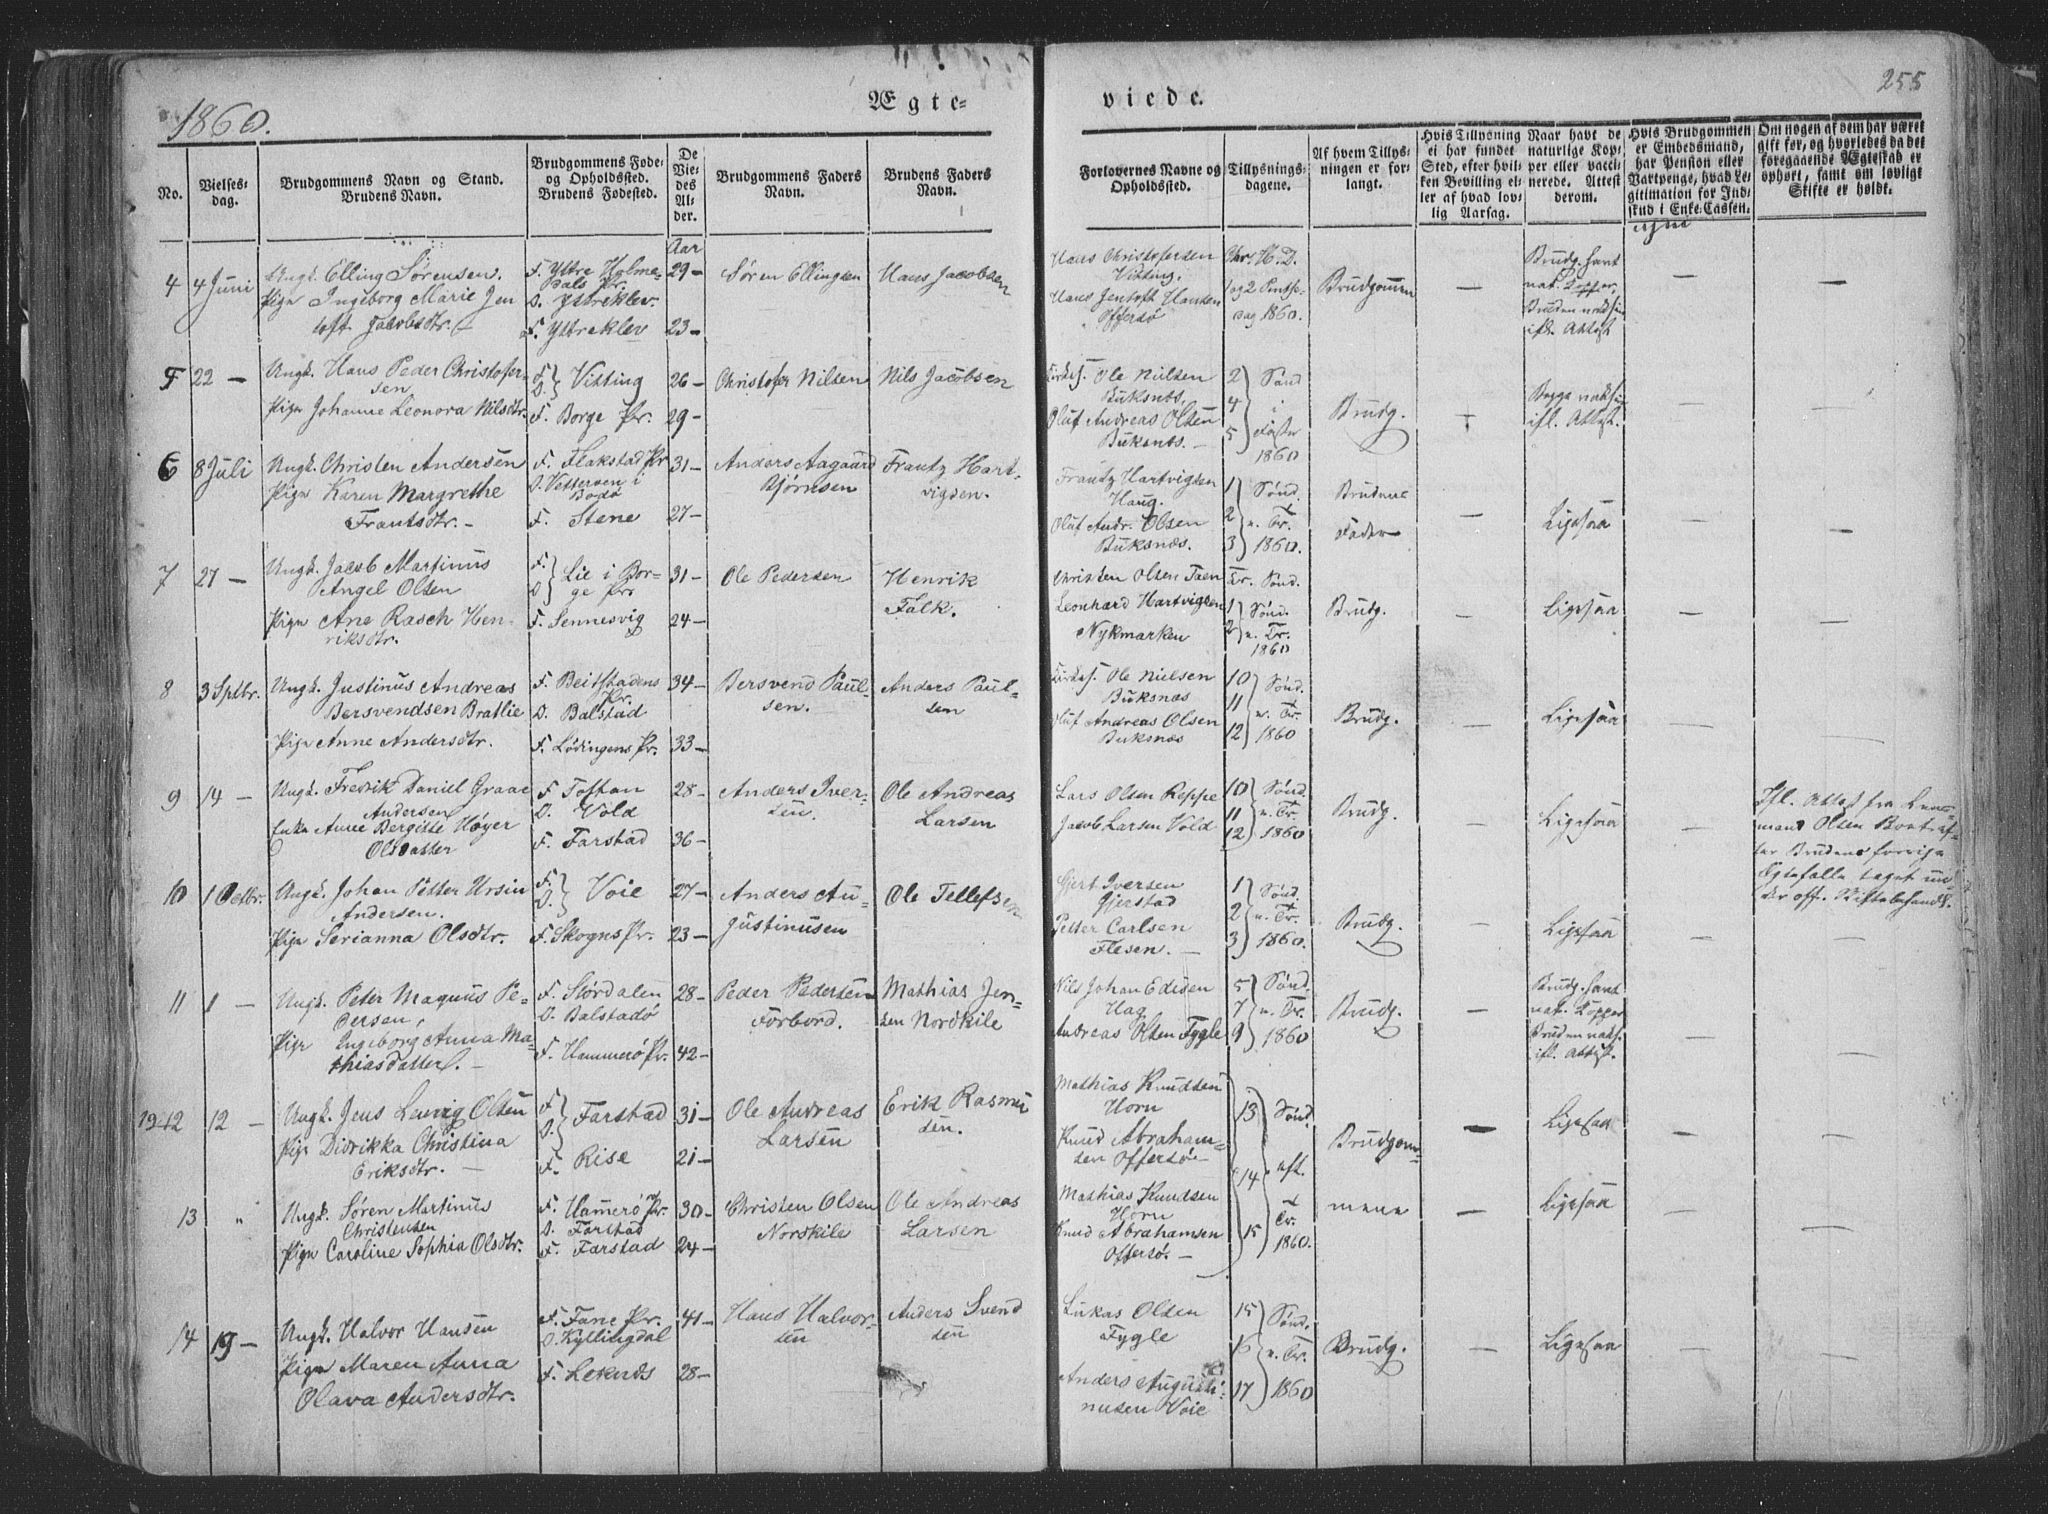 1860.
Ægte-
viede.
255
No.
Vielses-
dag.
Brudgommens Navn og Stand.
Brudens Navn.
Brudgommens Føde-
og Opholdssted.
Brudens Fødested.
De
Vie-
des
Al-
der.
Brudgommens Faders
Navn.
Brudens Faders
Navn.
Forlovernes Navne og
Opholdssted.
Tillysnings-
dagene.
Af hvem Tillys-
ningen er for-
langt.
Hvis Tillysning
ei har fundet
Sted, efter hvil-
ken Bevilling el-
ler af hvad lov-
lig Aarsag.
Naar havt de
naturlige Kop-
per eller vacci-
nerede. Attest
derom.
Hvis Brudgommen
er Embedsmand,
har Pension eller
Vartpenge, hvad Le-
gitimation for Ind-
skud i Enke-Cassen.
Om nogen af dem har været
gift før, og hvorledes da det
foregaaende Ægteskab er
ophørt, samt om lovligt
Skifte er holdt.
Aar
4 4 Juni Ungk. Elling Sørensen.
Pige Ingeborg Marie Jen
toft Jacobsdtr.
F. Ystre Holme
Hals Pr.
O. Ystreklev.
F. Ystreklev
29 –
23 –
Søren Ellingsen
Hans Jacobsen
Hans Christofersen
Vitting.
Hans Jentoft Hansen
Offersø
Chr. H. D.
1 og 2 Pintse-
dag 1860.
Brudgommen
—
Brudg. havt
nat. Kopper,
Bruden vaksin
ifl. Attest
—
—
5 22 — Ungk. Hans Peder Christofer-
sen
Pige Johanne Leonora Nilsdtr.
F.
O. } Vitting
F. Borge Pr.
26 –
29 –
Christofer Nilsen
Nils Jacobsen
Kirkes. Ole Nilsen
Buksnes.
Oluf Andreas Olsen
Buksnes. –
2
4
5
Sønd
i
Faste
1860
Brudg.
Begge vaksin
ifl. Attest.
6 8 Juli Ungk. Christen Andersen
Pige Karen Margrethe
Frantsdtr. –
F. Flakstad Pr
O. Vetterven i
Bodø
F. Stene
31 –
27 –
Anders Aagaard
Bjørnsen
Frantz Hart-
vigsen.
Frantz Hartvigsen
Haug.
Oluf Andr. Olsen
Buksnæs.
1
2
3
Sønd.
e. Tr.
1860.
Brudens
Fader
—
Ligesaa
7 27 — Ungk. Jacob Martinus
Angel Olsen
Pige Ane Rasch Hen-
riksdtr.
F.
O. } Lie i Bor-
ge Pr.
F. Sennesvig
31 –
24 –
Ole Pedersen
Henrik
Falk.
Christen Olsen Taen
Leonhard Hartvigsen
Nykmarken
Tr. Sønd.
1
2
Sønd.
e. Tr.
1860
Brudg.
Ligesaa
8 3 Sptbr. Ungk. Justinus Andreas
Bersvendsen Bratlie
Pige Anne Andersdtr.
F. Beitstadens
Pr.
O. Balstad
F. Lødingens Pr.
34 –
33 –
Bersvend Paul-
sen.
Anders Paul-
sen
Kirkes. Ole Nielsen
Buksnæs
Oluf Andreas Olsen
Buksnæs
10
11
12
Sønd.
e. Tr.
1860
Brudg.
Ligesaa
9 14 — Ungk. Fredrik Daniel Graae
Andersen
Enke Anne Bergitte Høyer
Olsdatter
F. Toftan
O. Vold
F. Farstad
28 –
36 –
Anders Iver-
sen.
Ole Andreas
Larsen
Lars Olsen Reppe
Jacob Larsen Vold
10
11
12
Sønd.
e. Tr.
1860
Brudg.
Ligesaa
Ifl. Attest fra Lens-
mand Olsen
Brudens forrige
Ægtefælle taget un-
der off. Skiftebehandl.
10 1 Octbr. Ungk. Johan Petter Ursin
Andersen.
Pige Serianna Olsdtr.
F.
O. } Voie
F. Skogns Pr.
27 –
23 –
Anders Au-
gustinusen
Ole Tellefsen
Gjert Iversen
Gjerstad
Petter Carlsen
Flesen. –
1
2
3
Sønd.
e. Tr.
1860.
Brudg.
Ligesaa
11 1 — Ungk. Peter Magnus Pe-
dersen,
Pige Ingeborg Anna Ma-
thiasdatter. –
F. Størdalen
O. Balstadø
F. Hammerø Pr.
28 –
42 –
Peder Pedersen
Forbord.
Mathias Jen-
sen Nordkile
Nils Johan Edisen
Hag
Andreas Olsen Fygle
5
7
9
Sønd.
e. Tr.
1860
Brudg.
Brudg. havt
nat. Kopper
Bruden vaks.
ifl. Attest.
12 12 — Ungk. Jens Lewig Olsen
Pige Didrikka Christina
Eriksdtr. –
F.
O. } Farstad
F. Rise
31 –
21 –
Ole Andreas
Larsen
Erik Rasmu
sen.
Mathias Knudsen
Horn
Knud Abraham-
sen Offersø –
13
14
15
Sønd.
eft.
Tr.
1860.
Brudgom-
mene
Ligesaa
13 " Ungk. Søren Martinus
Christensen
Pige Caroline Sophia Olsdtr.
F. Hamerø Pr.
O. Farstad
F. Farstad
30 –
24 –
Christen Olsen
Norskile
Ole Andreas
Larsen
Mathias Knudsen
Horn
Knud Abrahamsen
Offersø. –
Ligesaa
14 19 — Ungk. Halvor Hansen
Pige Maren Anna
Olava Andersdtr.
F. Fane Pr.
O. Kyllingdal
F. Leknes
41 –
28 –
Hans Halvor-
sen
Anders Svend
sen
Lukas Olsen
Fygle
Anders Augusti-
nusen Voie
15
16
17
Sønd.
e. Tr.
1860
Brudg.
Ligesaa